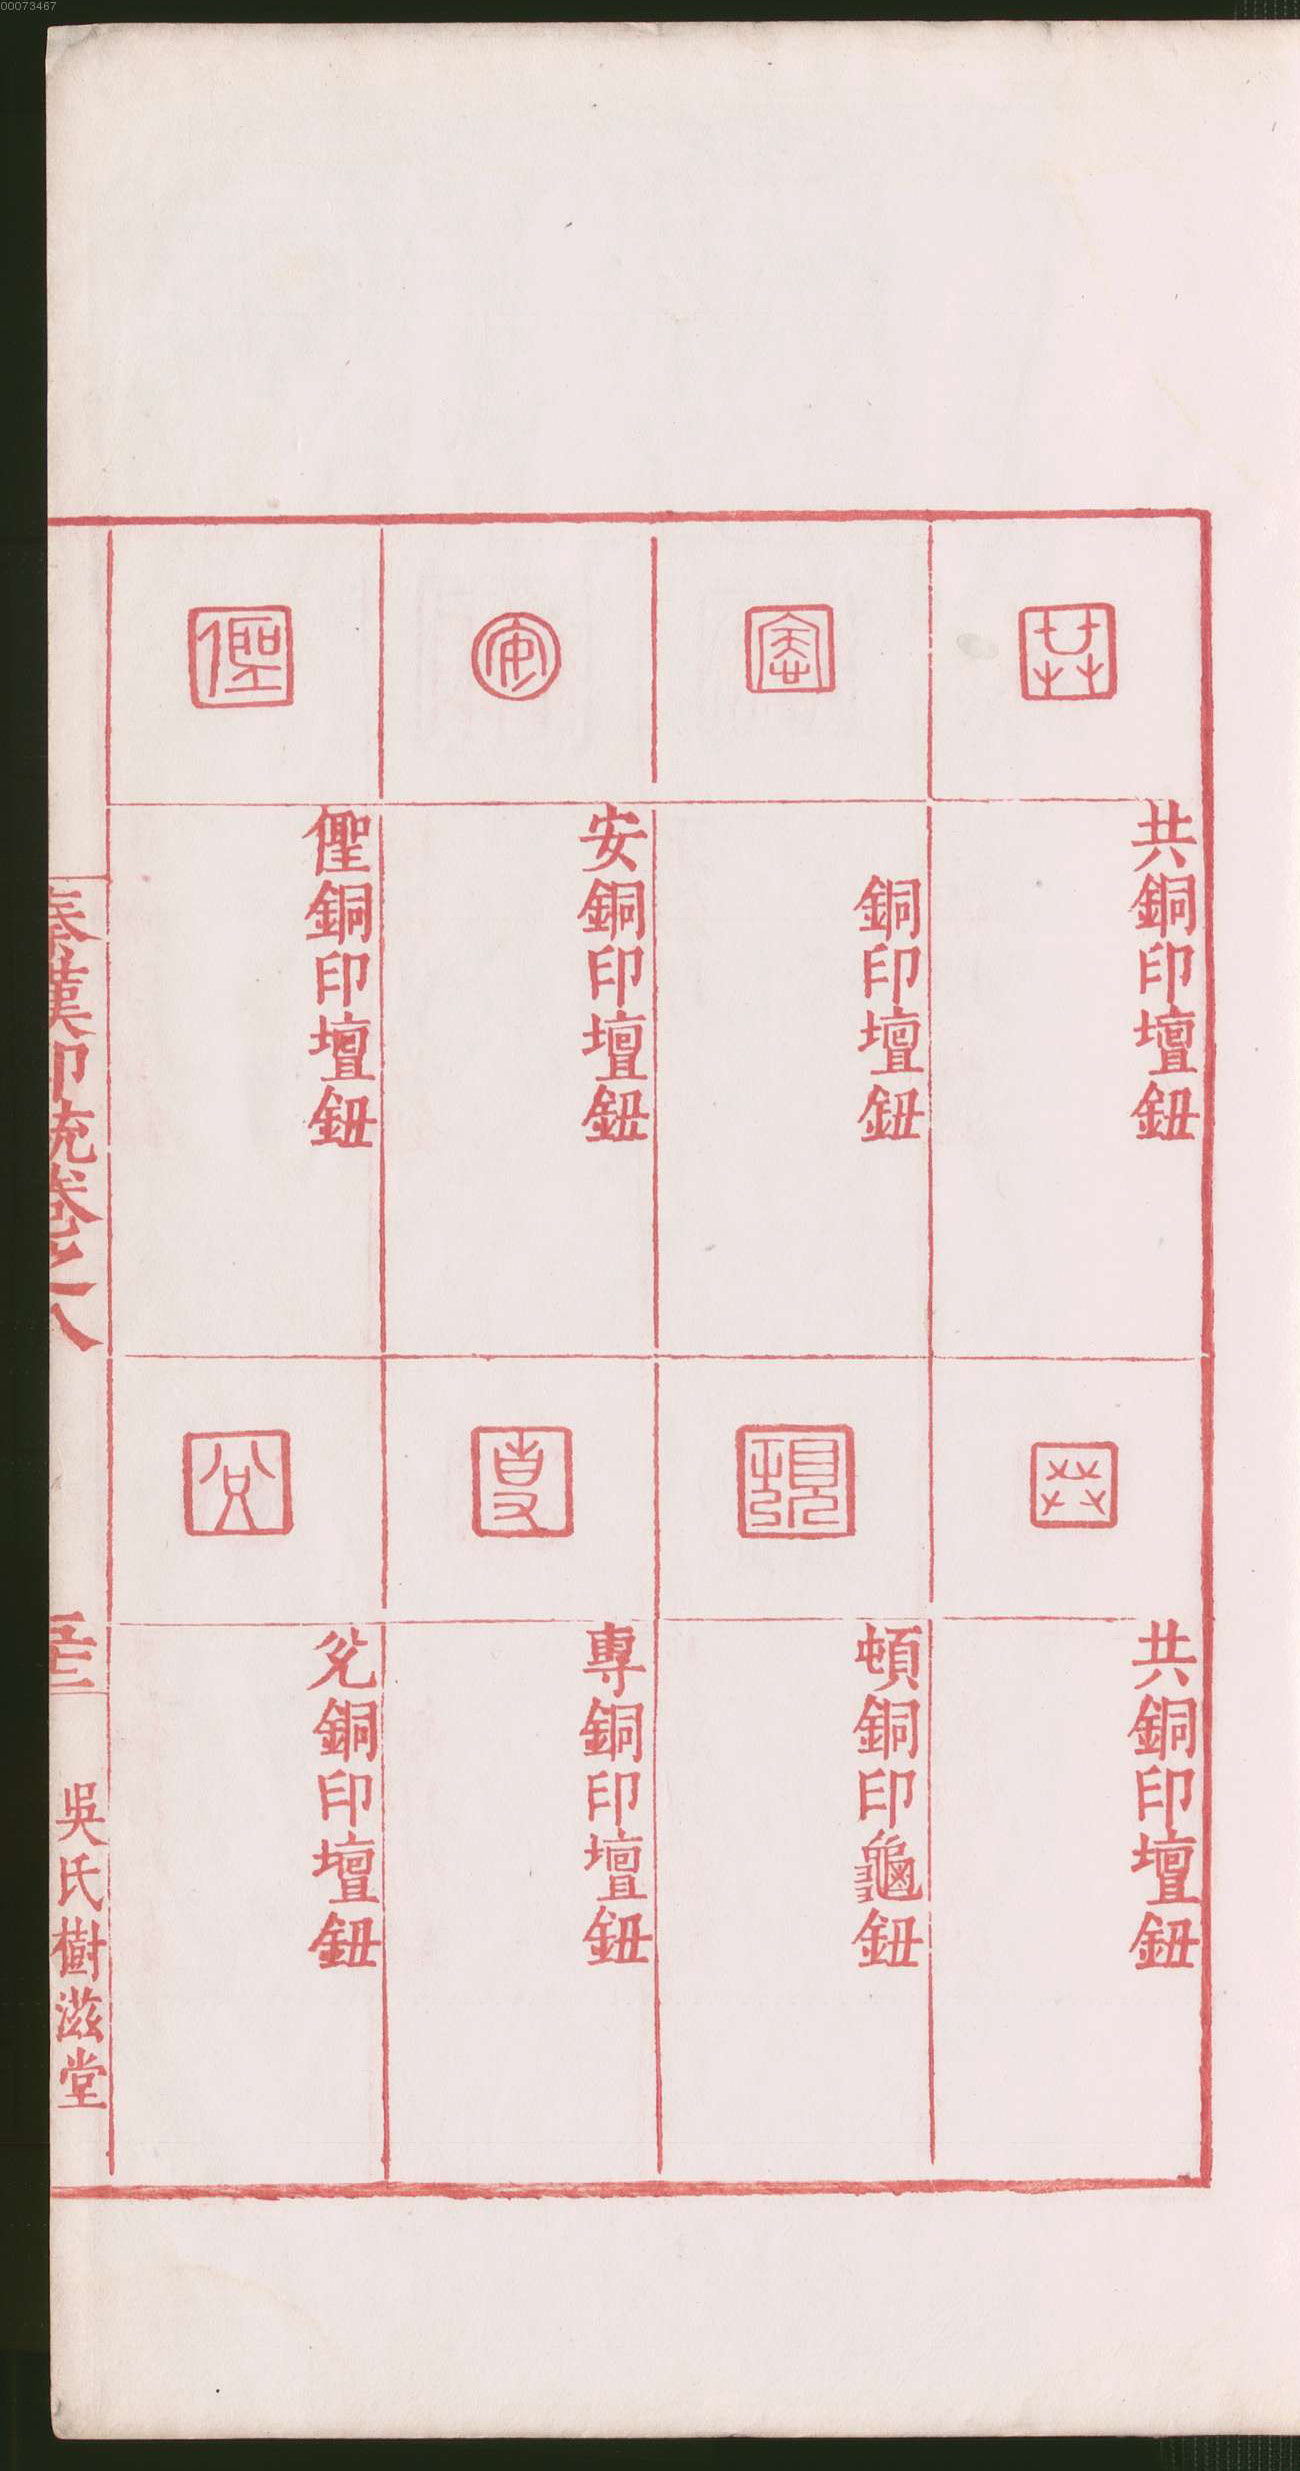 00073467
共銅印壇鈕
銅印壇鈕
安銅印壇鈕
僸銅印壇鈕
共銅印壇鈕
頓銅印龜鈕
專銅印壇鈕
兊銅印壇鈕
秦漢印統卷之八
吳氏樹滋堂